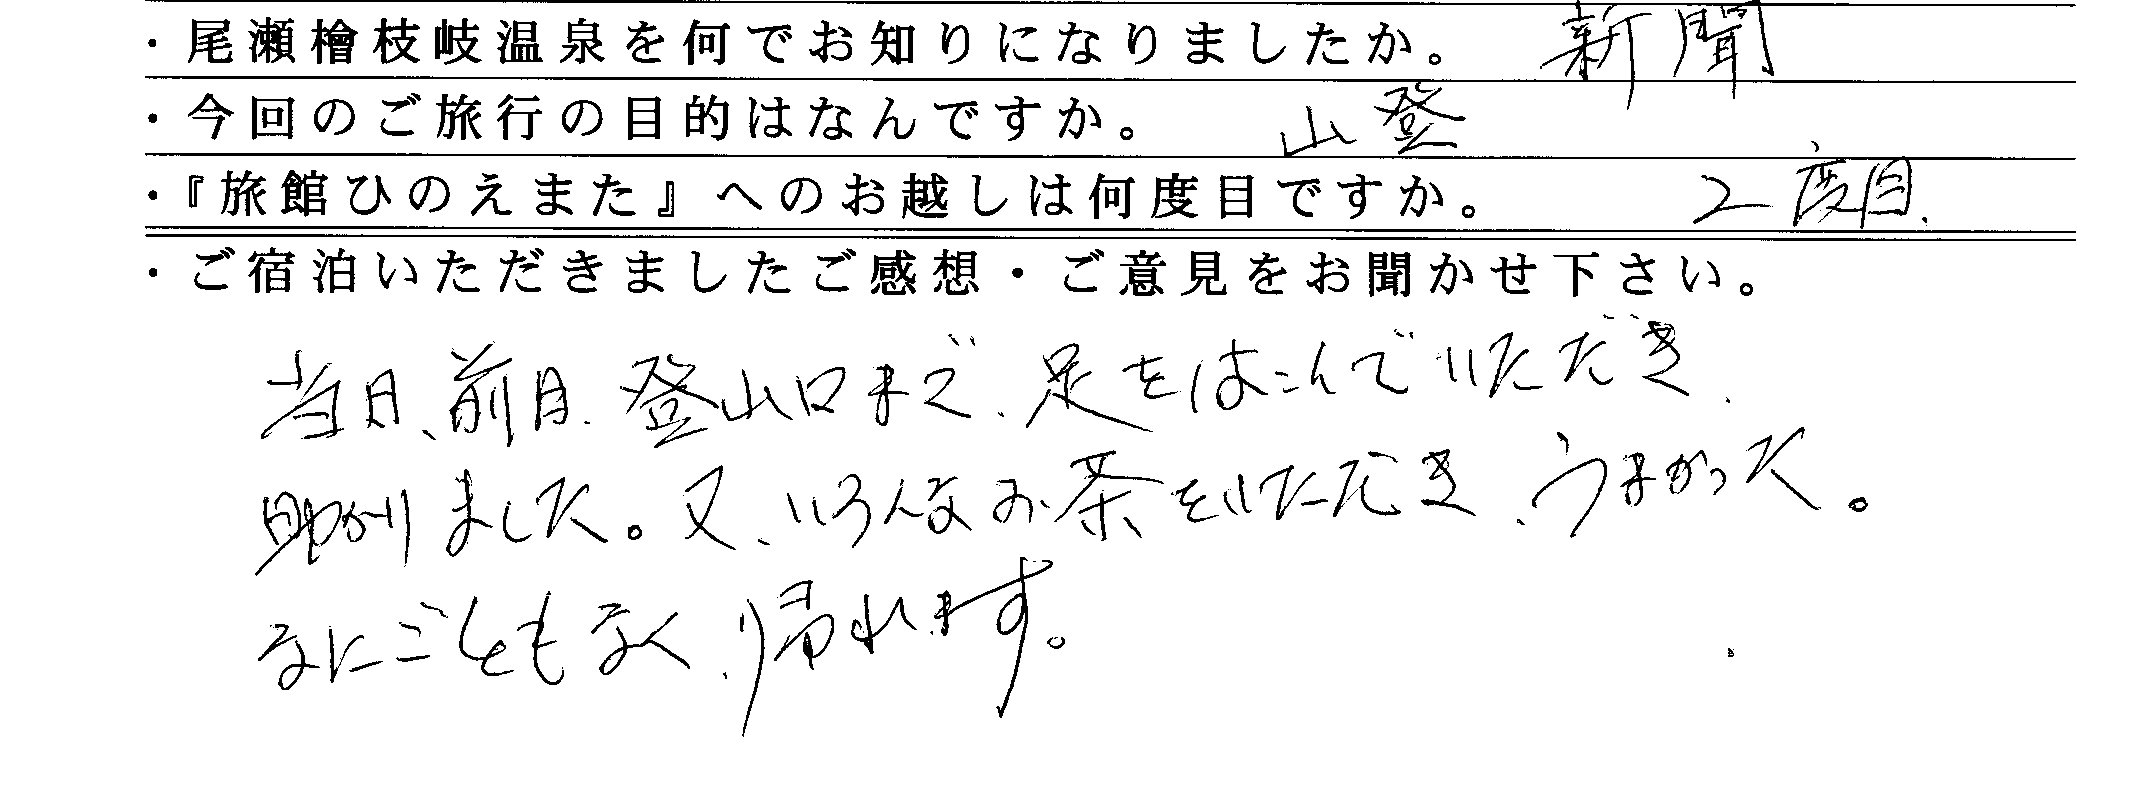 ・尾瀬檜枝岐温泉を何でお知りになりましたか。 新聞
・今回のご旅行の目的はなんですか。 山登
・『旅館ひのえまた』へのお越しは何度目ですか。 2度目.
・ご宿泊いただきましたご感想・ご意見をお聞かせ下さい。
当日、前日、登山口まで、足をはこんでいただき、
助かりました。又、いろんなお茶をいただき、うまかった。
なにごともなく、帰れます。